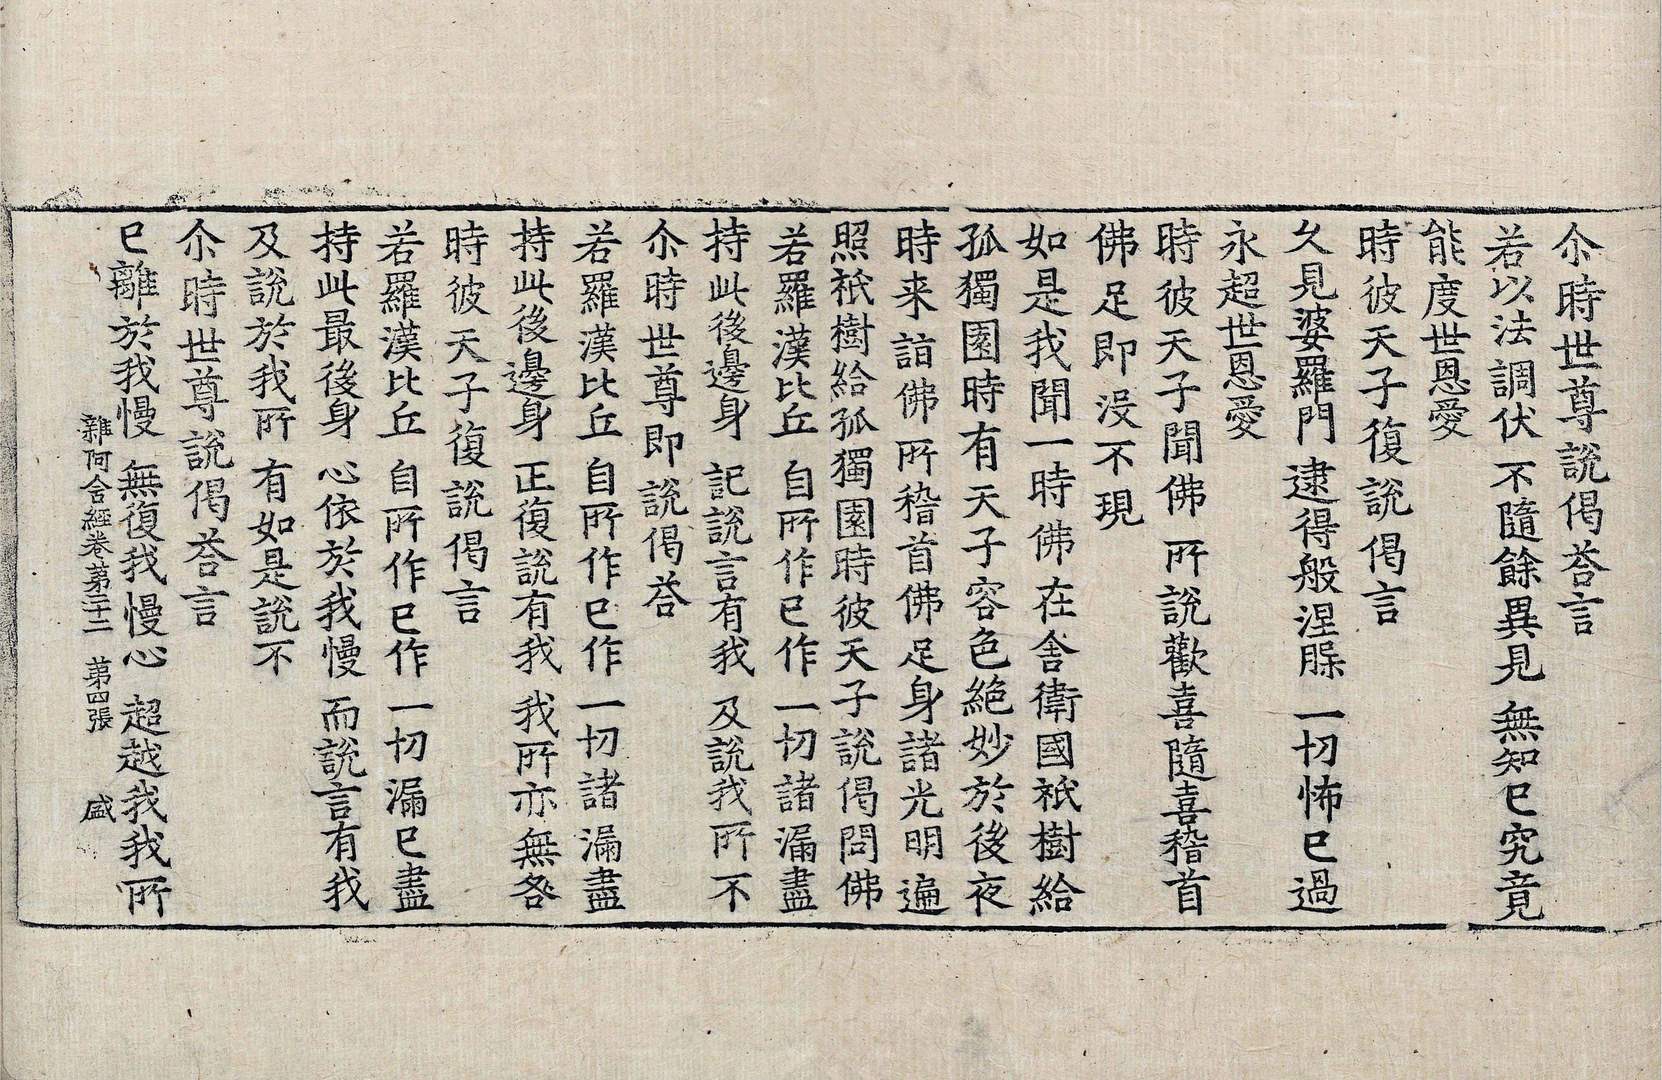 尒時世尊說偈荅言
若以法調伏 不隨餘異見 無知已究竟
能度世恩愛
時彼天子復說偈言
久見婆羅門 逮得般涅槃 一切怖已過
永超世恩愛
時彼天子聞佛所說歡喜隨喜稽首
佛足即没不現
如是我聞一時佛在舍衛國祇樹給
孤獨園時有天子容色絶妙於後夜
時来詣佛所稽首佛足身諸光明遍
照祇樹給孤獨園時彼天子說偈問佛
若羅漢比丘 自所作已作 一切諸漏盡
持此後邊身 記說言有我 及說我所不
尒時世尊即說偈荅
若羅漢比丘 自所作已作 一切諸漏盡
持此後邊身 正復說有我 我所亦無咎
時彼天子復說偈言
若羅漢比丘 自所作已作 一切漏已盡
持此最後身 心依於我慢 而說言有我
及說於我所 有如是說不
尒時世尊說偈荅言
已離於我慢 無復我慢心 超越我我所
雜阿含經卷第二十二 第四張 盛